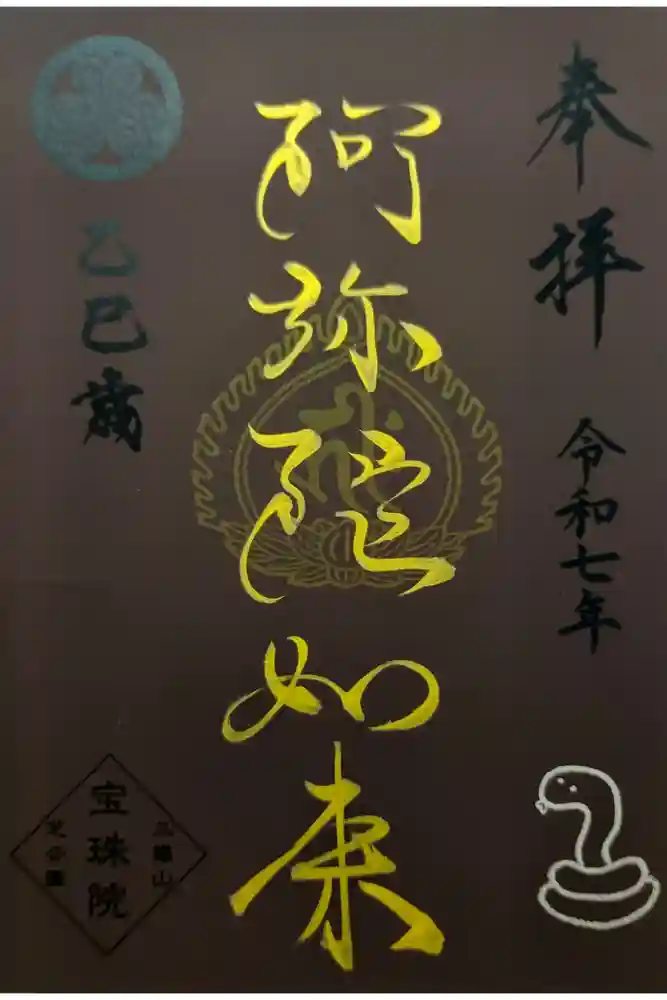 奉拝
令和七年
阿弥陀如来
乙巳歳
三縁山
宝珠院
芝公園